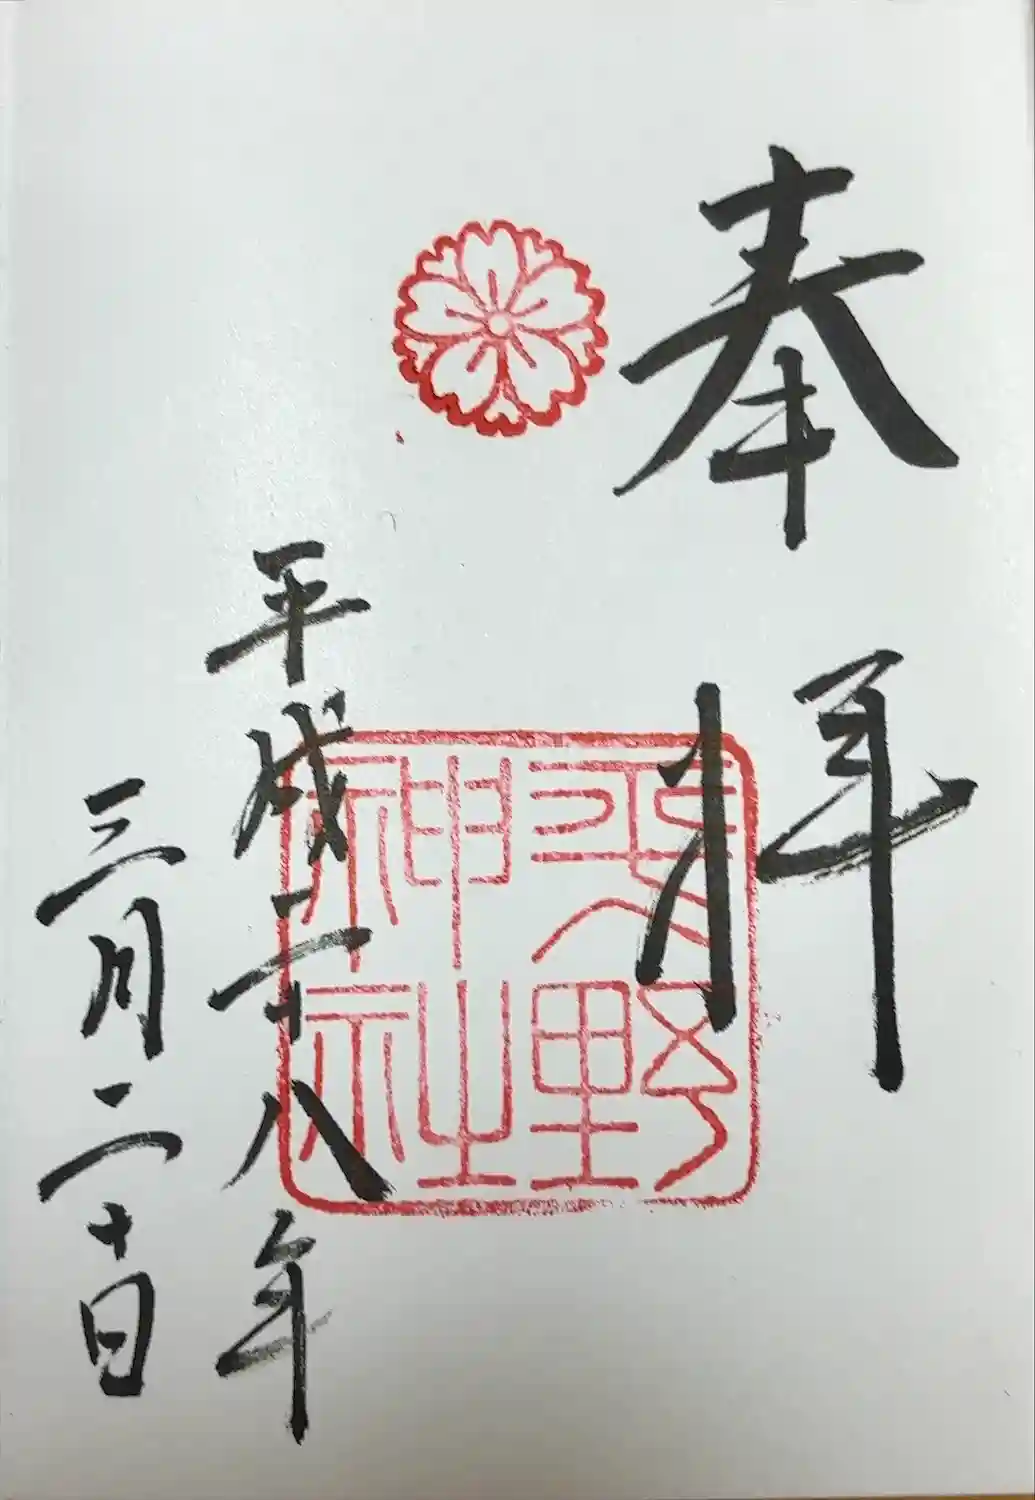 奉拝
平野
神社
平成二十八年
三月二十日